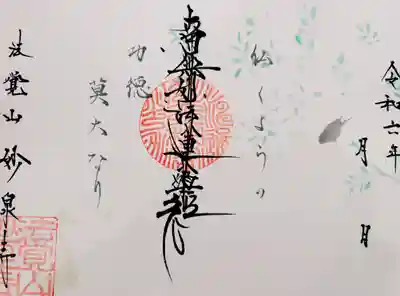 令和六年 月 日
仏くようの
南無妙法蓮華経
功徳
莫大なり
法覚山 妙泉寺